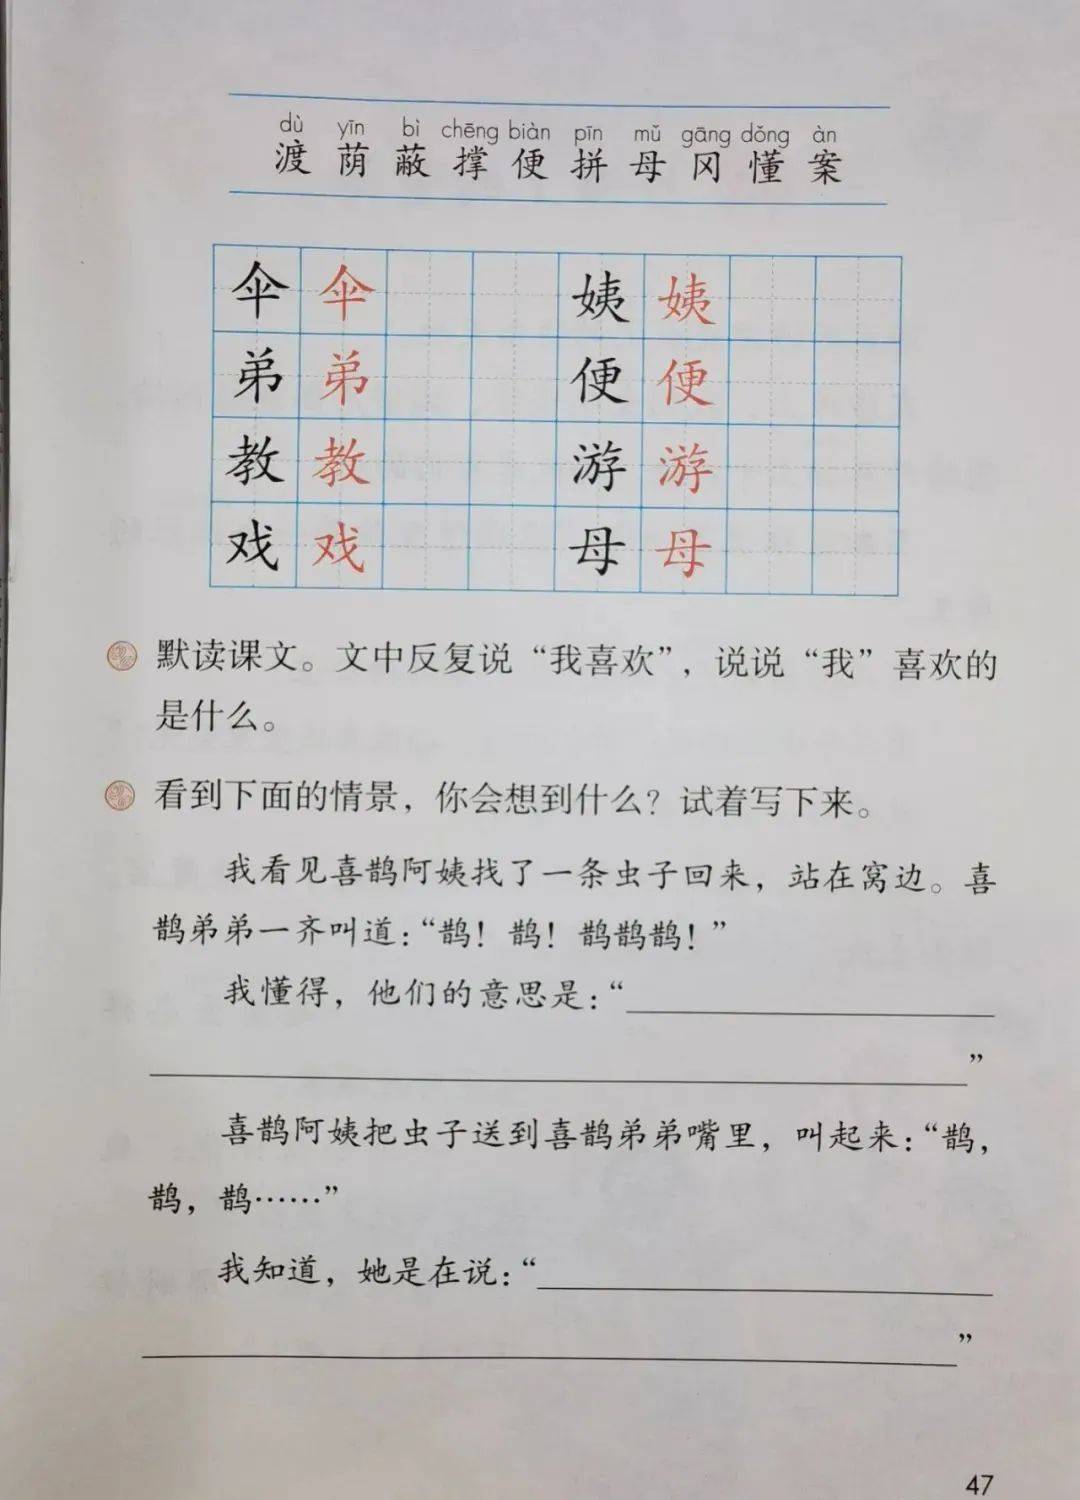 dù yīn bì chēng biàn pīn mǔ gāng dǒng àn
渡 荫 蔽 撑 便 拼 母 冈 懂 案
伞 伞 姨 姨
弟 弟 便 便
教 教 游 游
戏 戏 母 母
默读课文。文中反复说“我喜欢”，说说“我”喜欢的
是什么。
看到下面的情景，你会想到什么？试着写下来。
我看见喜鹊阿姨找了一条虫子回来，站在窝边。喜
鹊弟弟一齐叫道：“鹊！鹊！鹊鹊鹊！”
我懂得，他们的意思是：“
”
喜鹊阿姨把虫子送到喜鹊弟弟嘴里，叫起来：“鹊，
鹊，鹊……”
我知道，她是在说：“
”
47